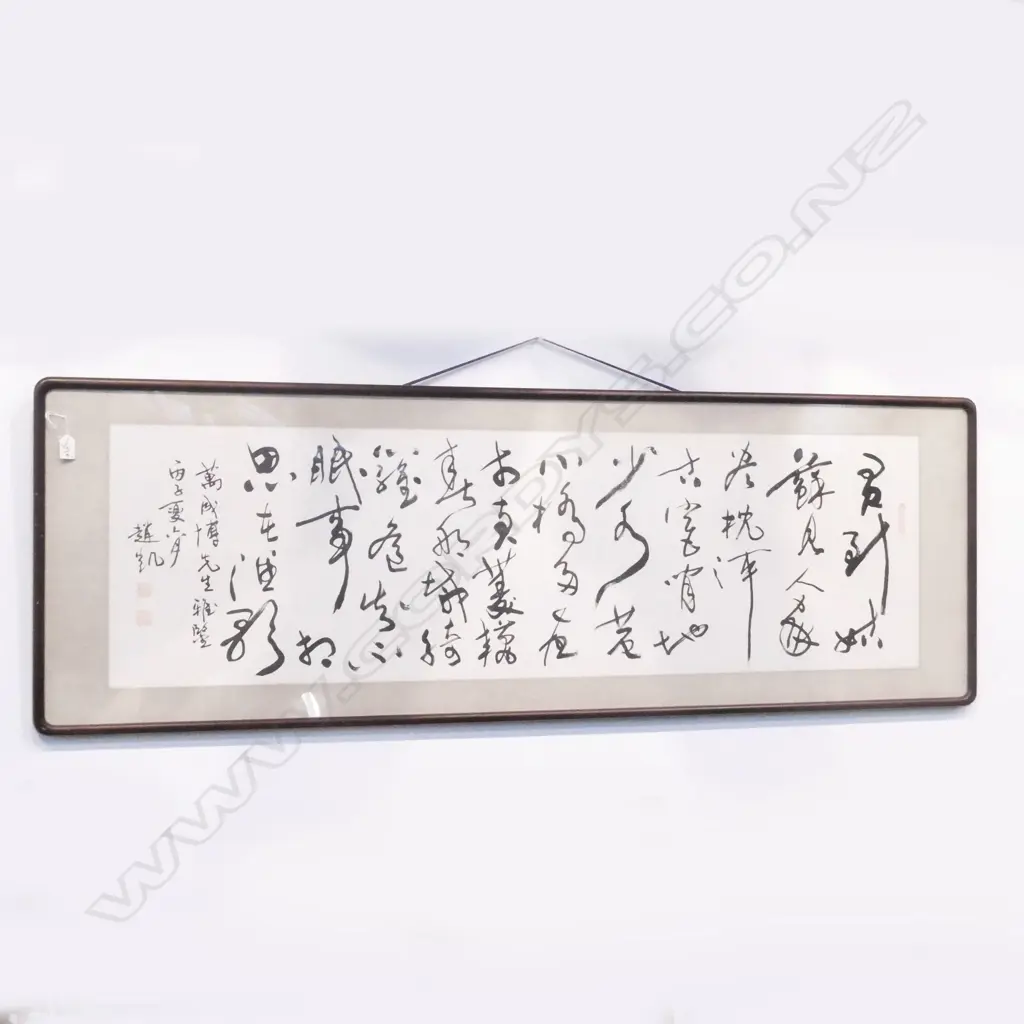 君到姑
蘇見人家
盡枕河
古宮閒地
少水巷
小橋多夜
市賣菱藕
春船載綺
羅遙知未
眠鄉
思在漁歌
萬成博先生雅鑒
丙子夏六月
趙凱
WWW.CORDYS.CO.NZ